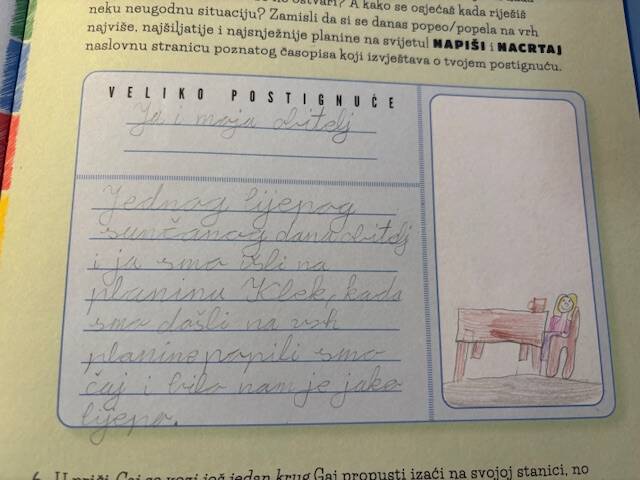 neku neugodnu situaciju? Zamisli da si se danas popeo/popela na vrh
najviše, najšiljatije i najsnježnije planine na svijetu! NAPIŠI i NACRTAJ
naslovnu stranicu poznatog časopisa koji izvještava o tvojem postignuću.
VELIKO POSTIGNUĆE
Ja i moja obitelj
Jednog lijepog
sunčanog dana obitelj
i ja smo išli na
planinu Klek, kada
smo došli na vrh
planine popili smo
čaj i bilo nam je jako
lijepo.
6. U priči Gaj se vozi još jedan krug Gaj propusti izaći na svojoj stanici, no